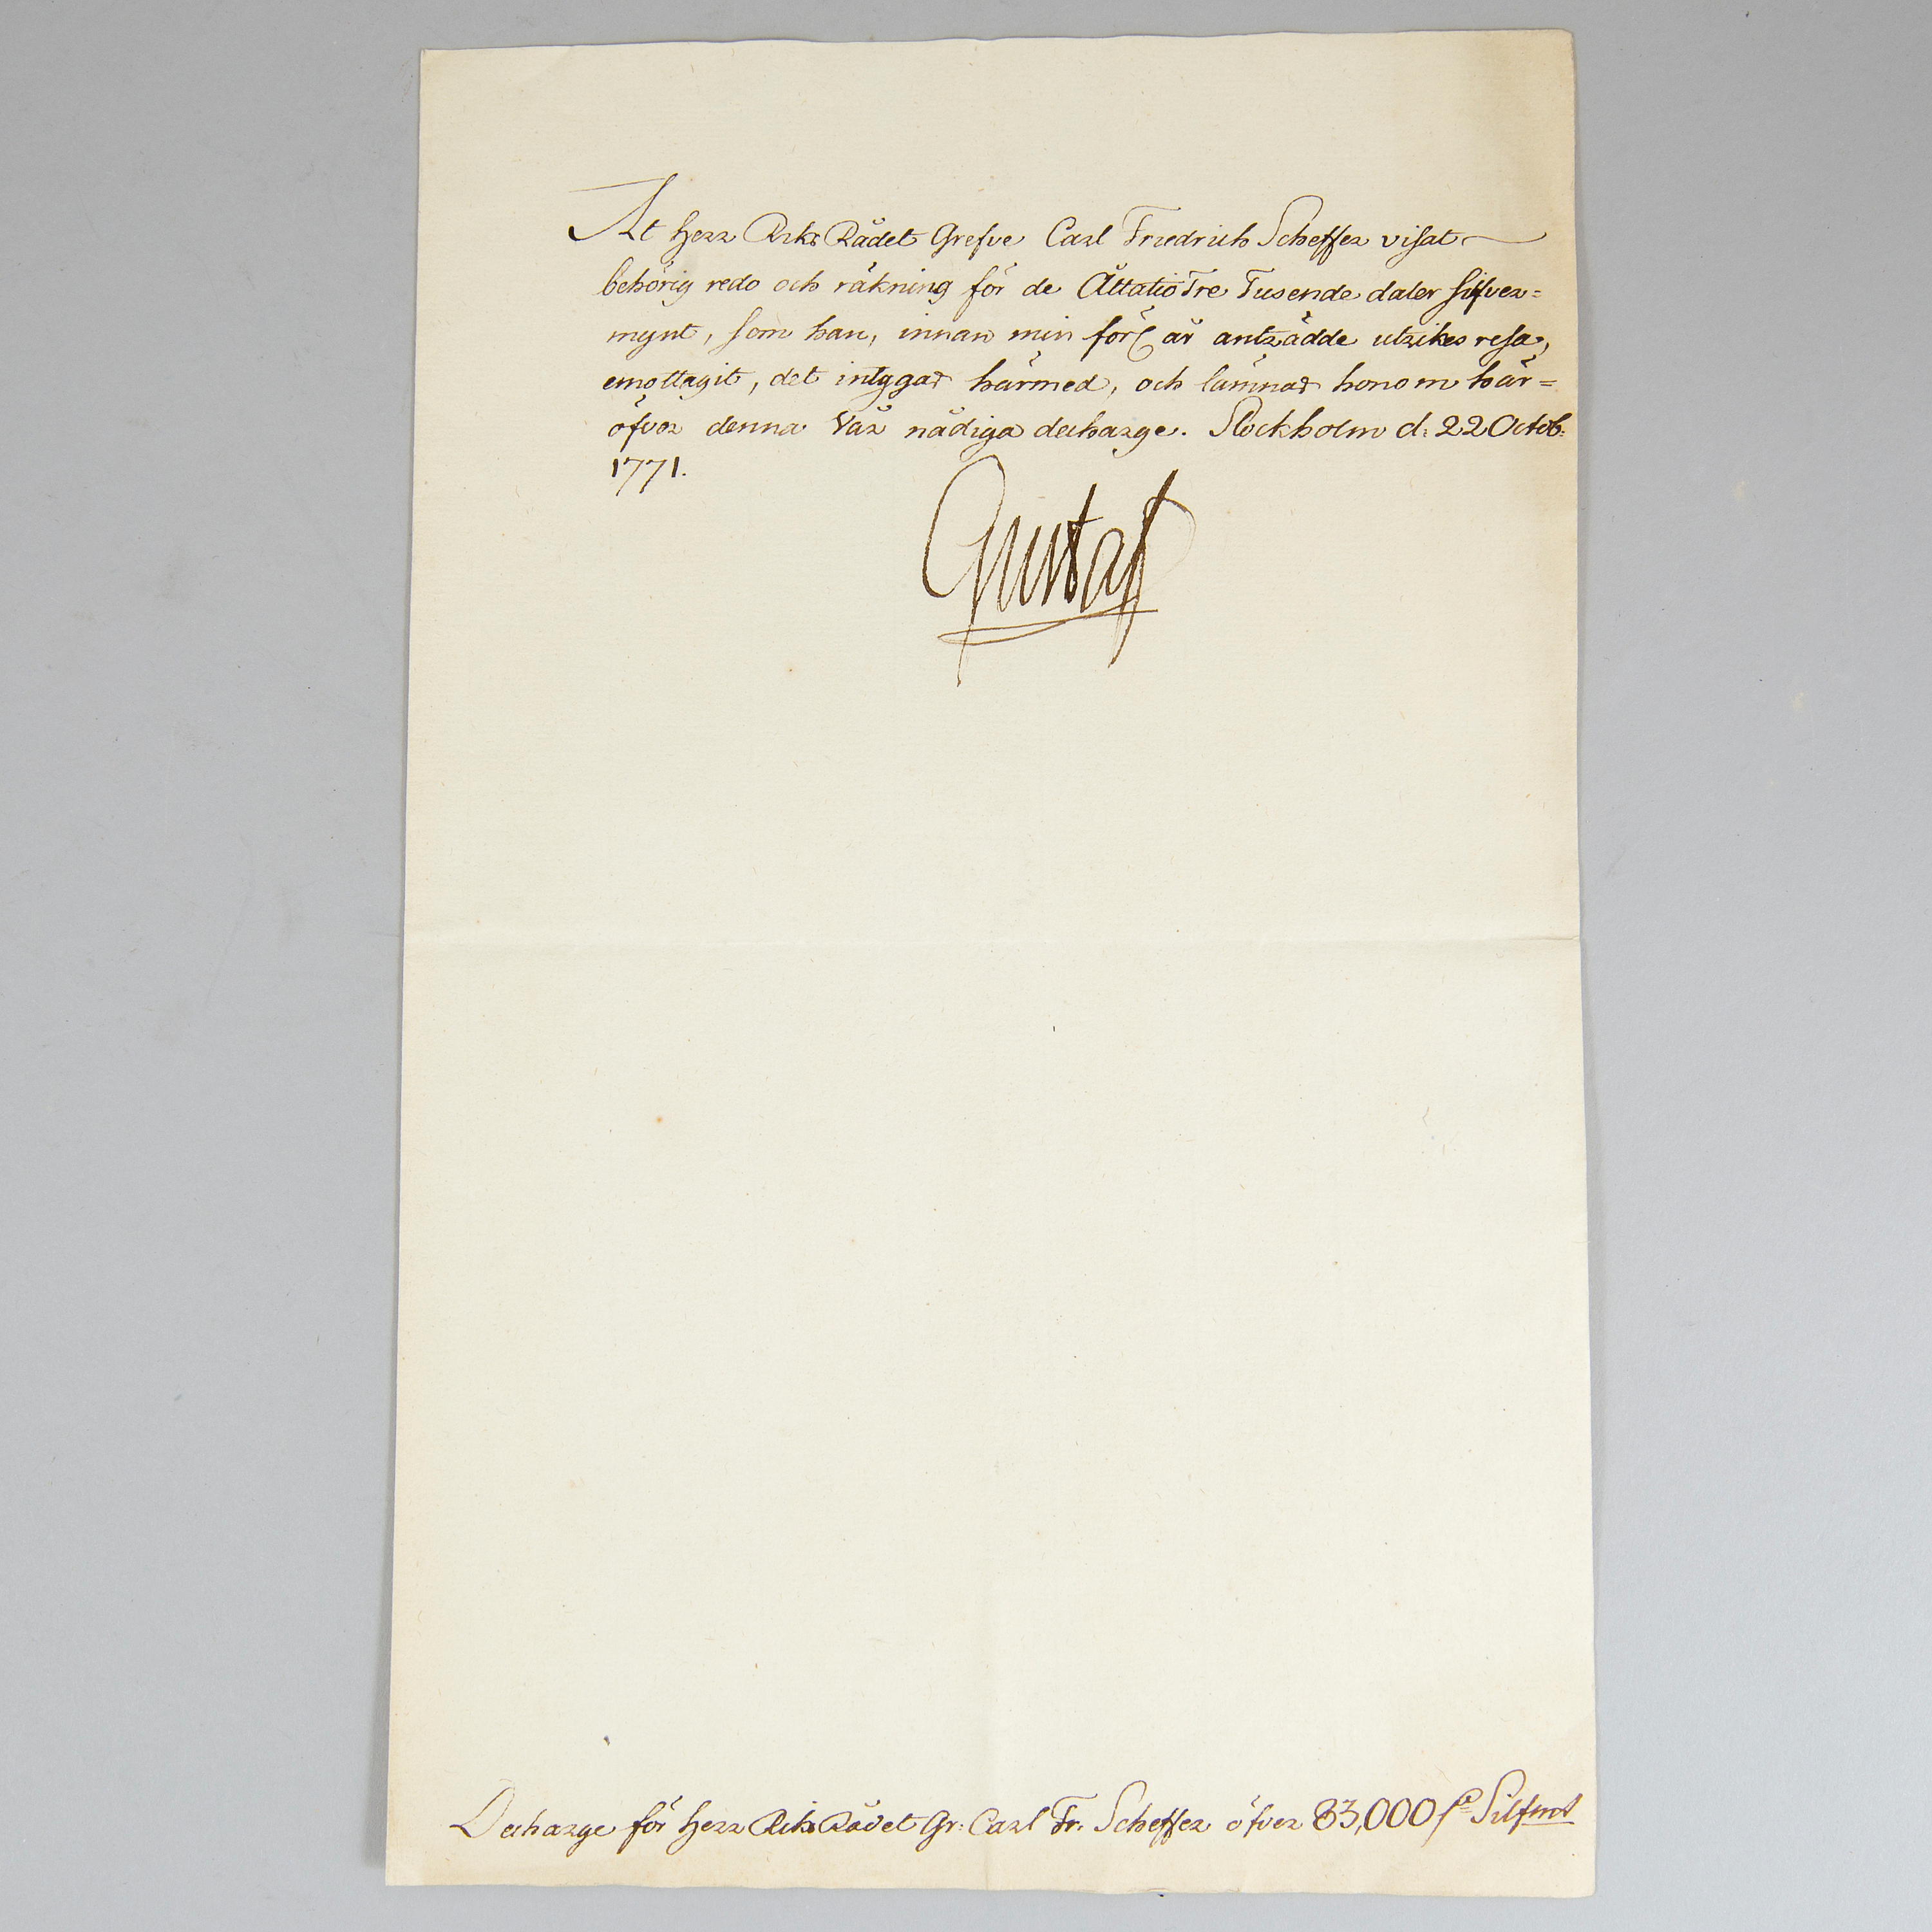 At Herr Riks Rådet Grefve Carl Friedrich Scheffer visat
behörig redo och räkning för de Åttatio Tre Tusende daler silfver=
mynt, som han, innan min för är anträdde utrikes resa,
emottagit, det intygar härmed, och lämnar honom här=
öfver denna Vår nådiga decharge. Stockholm d: 22 Octob:
1771.
Gustaf
Decharge för Herr Riks Rådet Gr: Carl Fr. Scheffer öfver 83,000 Silfmt